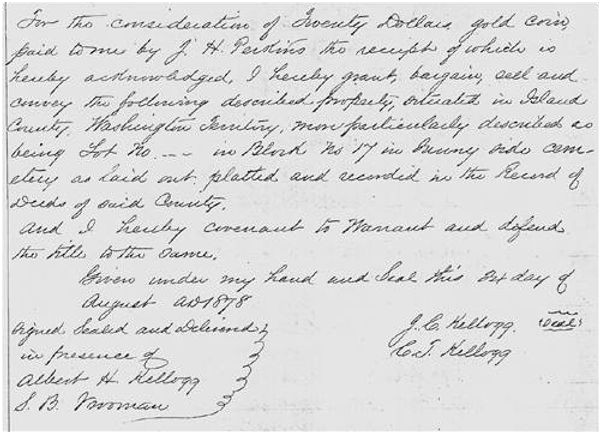 For the consideration of Twenty Dollars gold coin,
paid to me by J. H. Perkins the receipt of which is
hereby acknowledged, I hereby grant, bargain, sell and
convey the following described property, situated in Island
County, Washington Territory, more particularly described as
being Lot No. --- in Block No 17 in Sunny side cem-
etery as laid out platted and recorded in the Record of
Deeds of said County.
And I hereby covenant to Warrant and defend
the title to the same.
Given under my hand and Seal this day of
August AD 1878
Signed Sealed and Delivered
in presence of
Albert H. Kellogg
S. B. Vrooman
J. C. Kellogg (Seal)
C. T. Kellogg